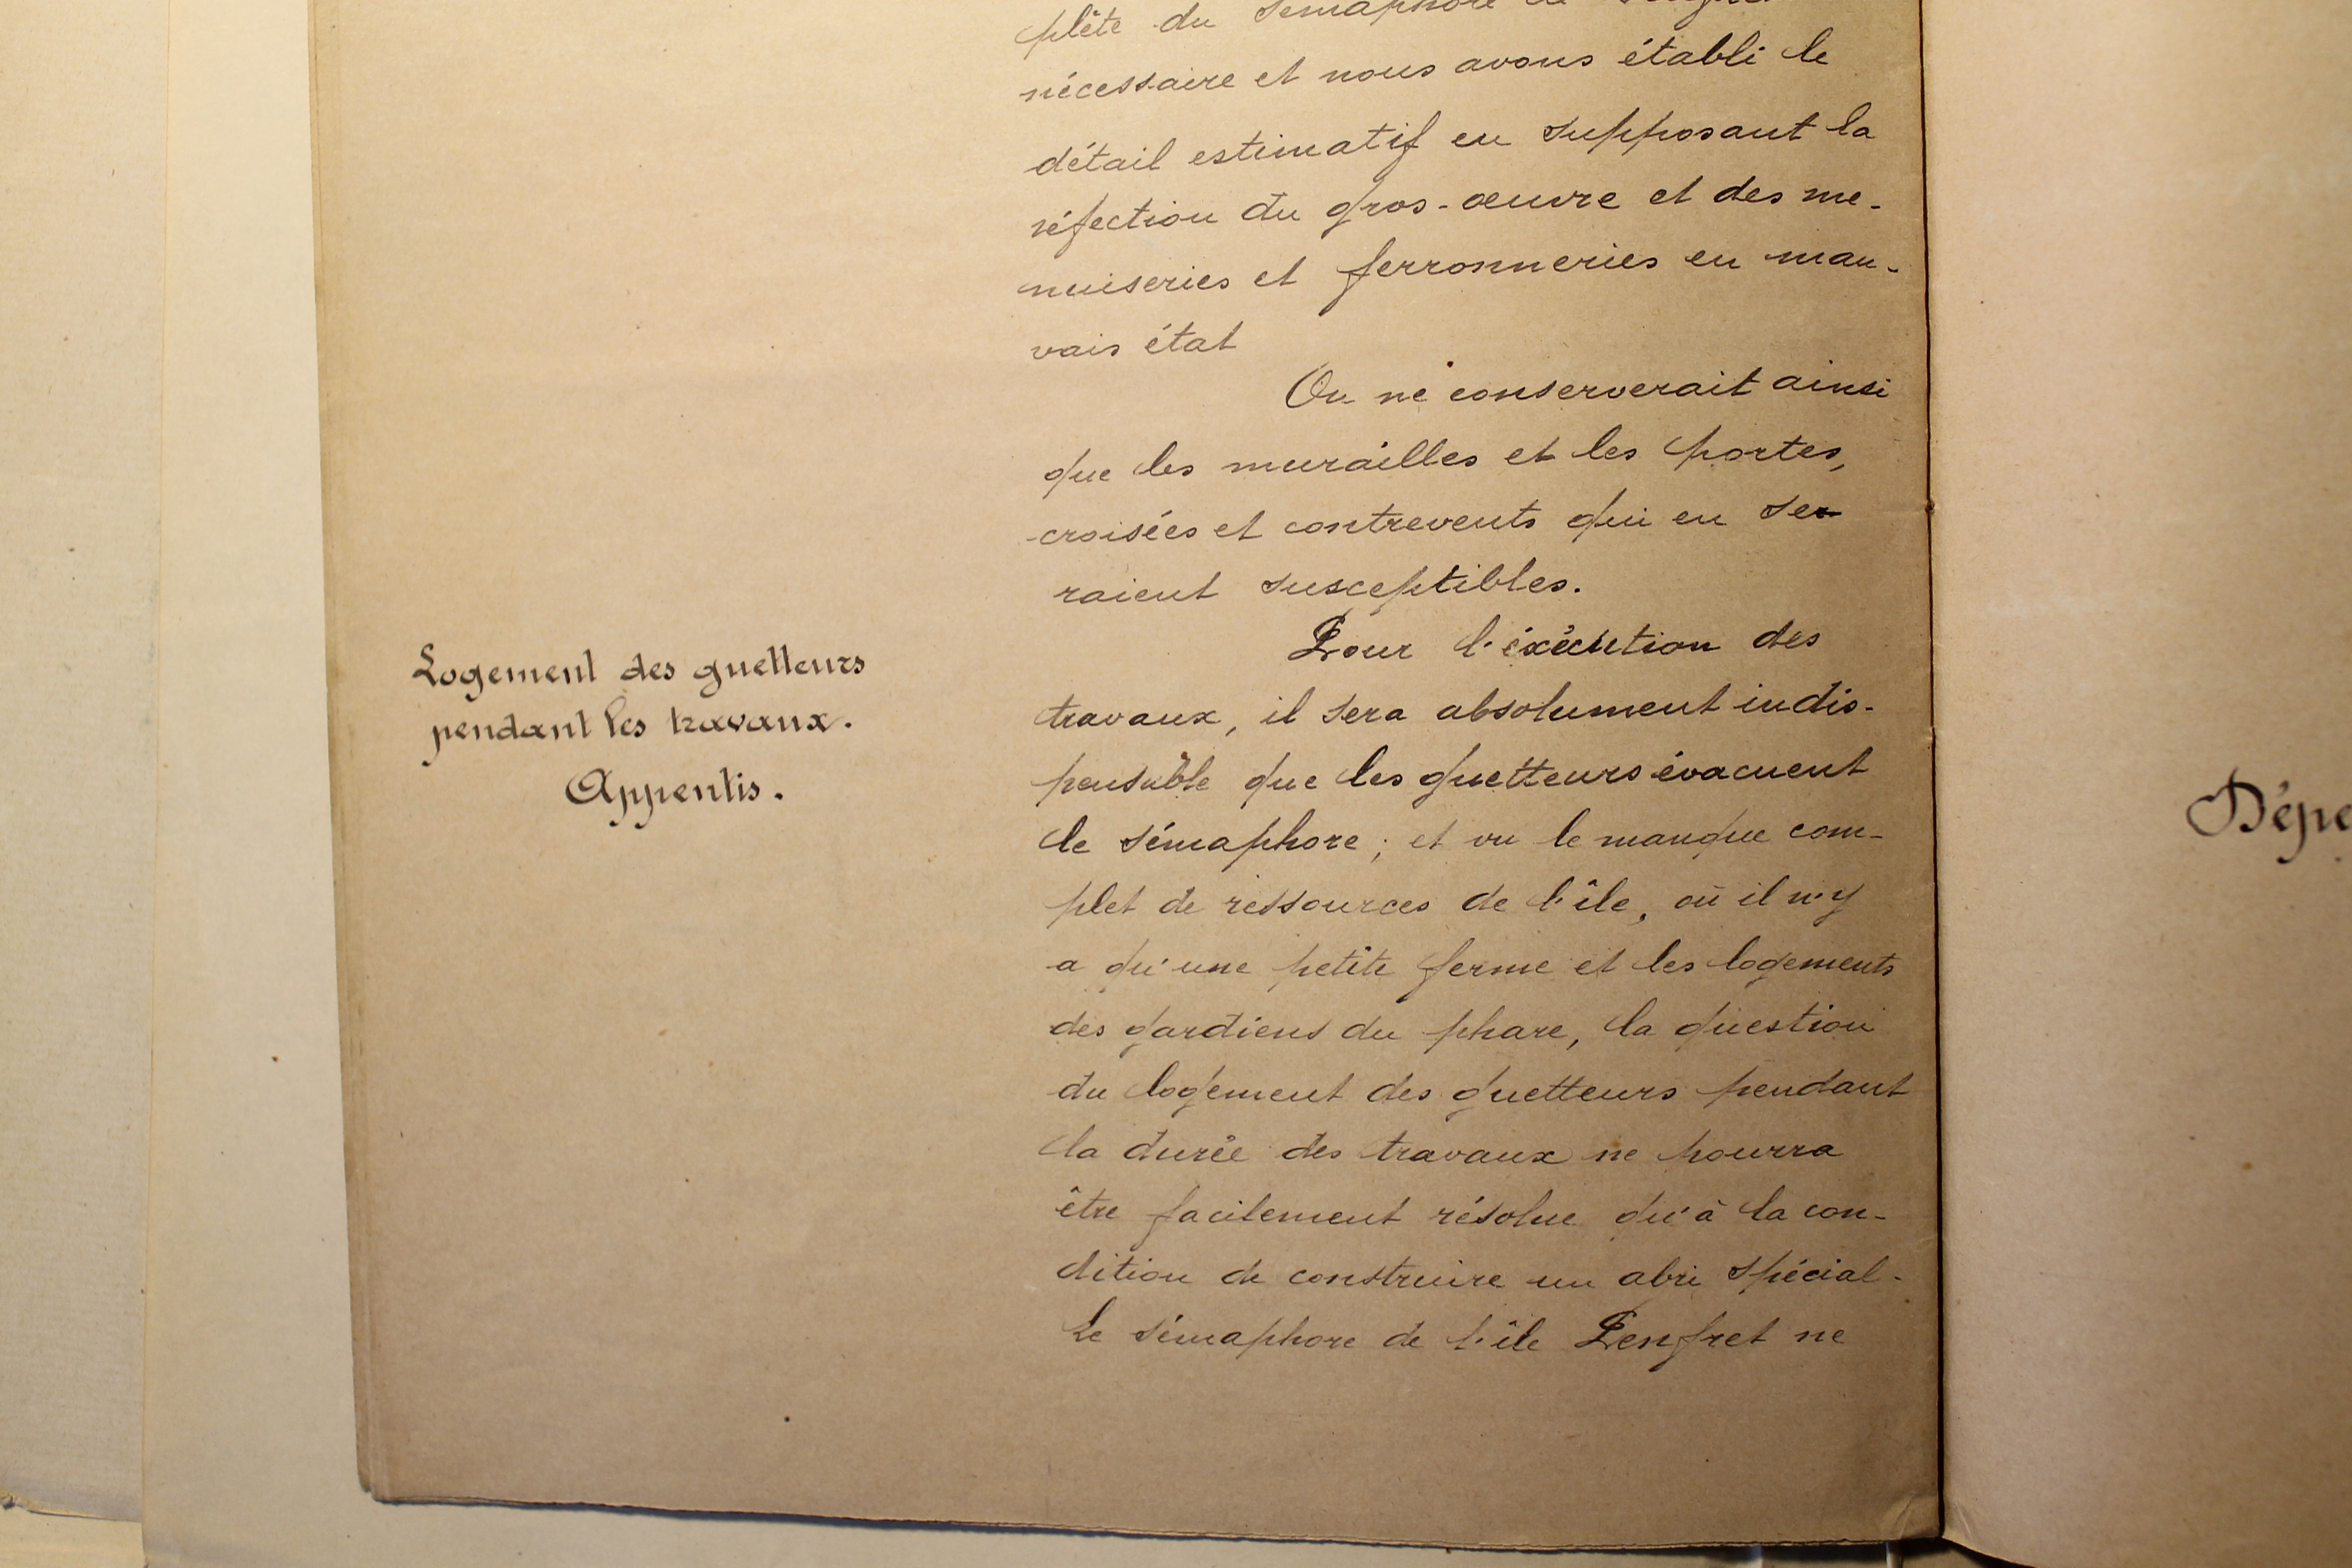 plète du sémaphore
nécessaire et nous avons établi le
détail estimatif en supposant la
réfection du gros-œuvre et des me-
nuiseries et ferronneries en mau-
vais état
On ne conserverait ainsi
que les murailles et les portes,
croisées et contrevents qui en se-
raient susceptibles.
Logement des guetteurs
pendant les travaux.
Appentis.
Pour l'éxécution des
travaux, il sera absolument indis-
pensable que les guetteurs évacuent
le sémaphore ; et vu le manque com-
plet de ressources de l'île, où il n'y
a qu'une petite ferme et les logements
des gardiens du phare, la question
du logement des guetteurs pendant
la durée des travaux ne pourra
être facilement résolue qu'à la con-
dition de construire un abri spécial.
Le sémaphore de l'île Penfret ne
Dépe